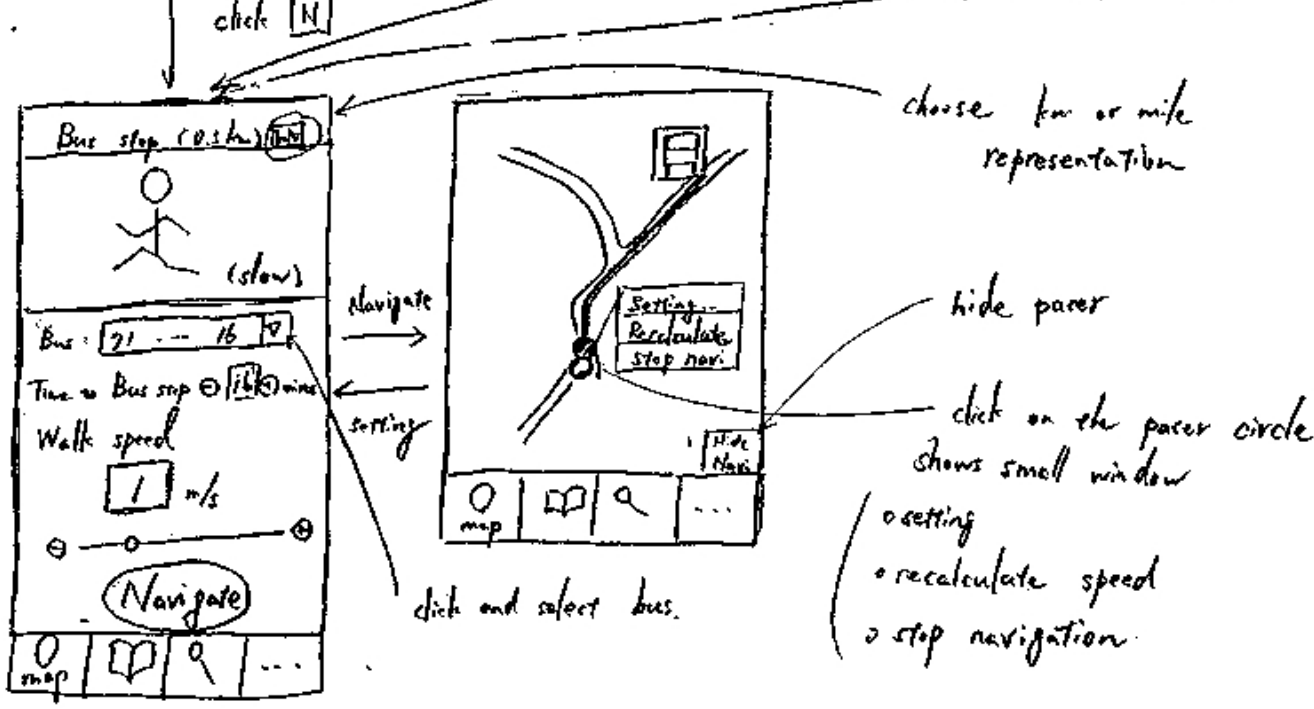 click N
Bus stop (0.5 km)
(slow)
Bus: 21 --- 16
Time to Bus stop ⊖ 16 ⊕ mins
Walk speed
1 m/s
⊖ ⊕
Navigate
map ...
Navigate
setting
Setting...
Recalculate
Stop navi.
Hide
Navi
map ...
click and select bus.
choose km or mile
representation
hide pacer
click on the pacer circle
shows small window
o setting
o recalculate speed
o stop navigation